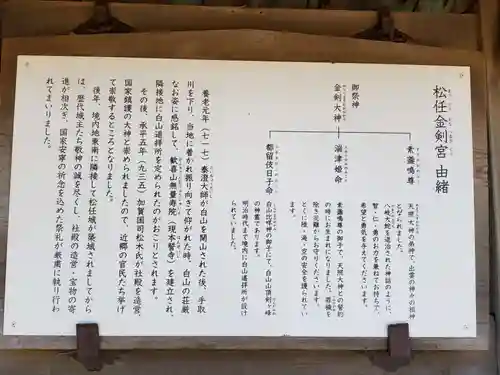 松任金剣宮 由緒
まっとうきんけんぐう
御祭神
金剣大神
素盞鳴尊
天照大神の弟神で、出雲の神々の祖神
となられました。
八岐大蛇を退治された神話のように、
智・仁・勇のお力を兼ねてお持ちで、
希望と勇気を与えてくださいます。
湍津姫命
素盞鳴尊の御子で、天照大神との誓約
の時にお生まれになりました。罪穢を
除き厄難からお守りくださいます。
とくに陸・海・空の安全を護られてい
ます。
都留伎日子命
白山比咩神の御子にて、白山山頂剣ヶ峰
の神霊であります。
明治時まで境内に白山遥拝所が設け
られていました。
養老元年(七一七)泰澄大師が白山を開山された後、手取
川を下り、当地に着かれ振り向きて仰がれた時、白山の荘厳
なお姿に感銘して、歓喜山無量寿院(現本誓寺)を建立され、
隣接地に白山遥拝所を定められたのがおこりとされます。
その後、承平五年(九三五)加賀国司松木氏が社殿を造営、
国家鎮護の大神と崇められましたので、近郷の官民たち挙げ
て崇敬するところとなりました。
後年、境内地東南に隣接して松任城が築城されましてから
は、歴代城主たち敬神の誠を尽くし、社殿の造営・宝物の寄
進が相次ぎ、国家安寧の祈念を込めた祭礼が厳粛に執り行わ
れてまいりました。